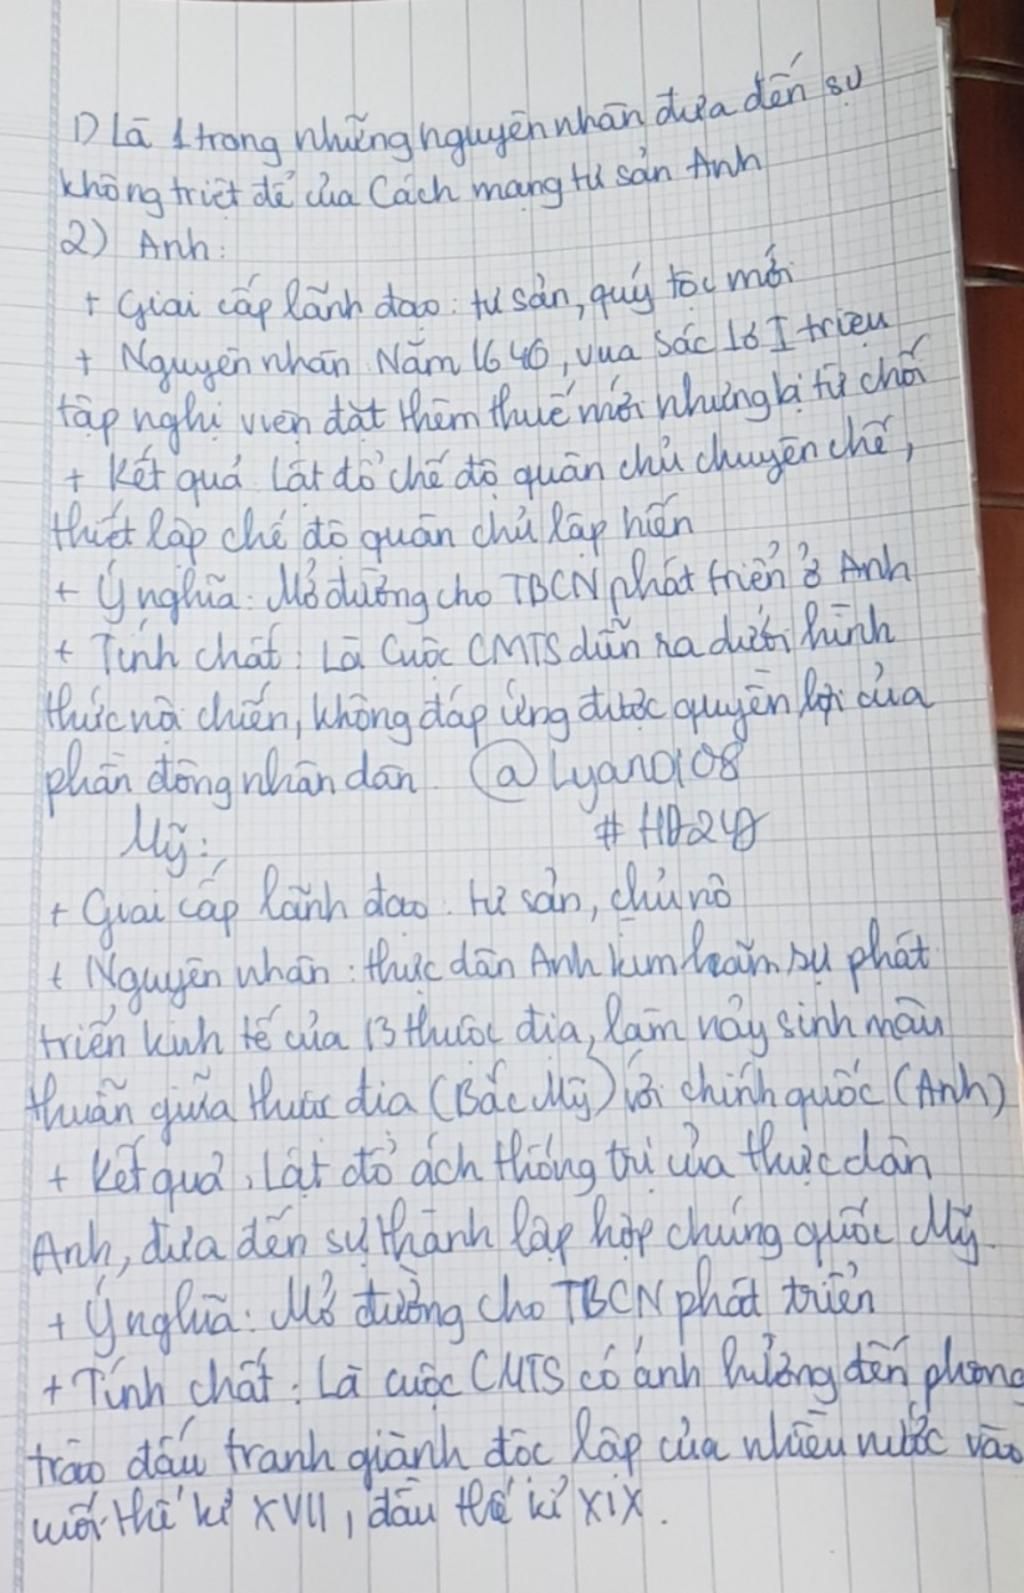 1) Là 1 trong những nguyên nhân đưa đến sự
không triệt để của Cách mạng tư sản Anh
2) Anh:
+ Giai cấp lãnh đạo: tư sản, quý tộc mới
+ Nguyên nhân: Năm 1640, vua Sác lơ I triệu
tập nghị viện đặt thêm thuế mới nhưng bị từ chối
+ Kết quả: Lật đổ chế độ quân chủ chuyên chế,
thiết lập chế độ quân chủ lập hiến
+ Ý nghĩa: Mở đường cho TBCN phát triển ở Anh
+ Tính chất: Là cuộc CMTS diễn ra dưới hình
thức nội chiến, không đáp ứng được quyền lợi của
phần đông nhân dân. @Lyano108
Mỹ: #HD240
+ Giai cấp lãnh đạo: tư sản, chủ nô
+ Nguyên nhân: thực dân Anh kìm hãm sự phát
triển kinh tế của 13 thuộc địa, làm nảy sinh mâu
thuẫn giữa thuộc địa (Bắc Mỹ) với chính quốc (Anh)
+ Kết quả: Lật đổ ách thống trị của thực dân
Anh, đưa đến sự thành lập hợp chúng quốc Mỹ.
+ Ý nghĩa: Mở đường cho TBCN phát triển
+ Tính chất: Là cuộc CMTS có ảnh hưởng đến phong
trào đấu tranh giành độc lập của nhiều nước vào
cuối thế kỉ XVII, đầu thế kỉ XIX.